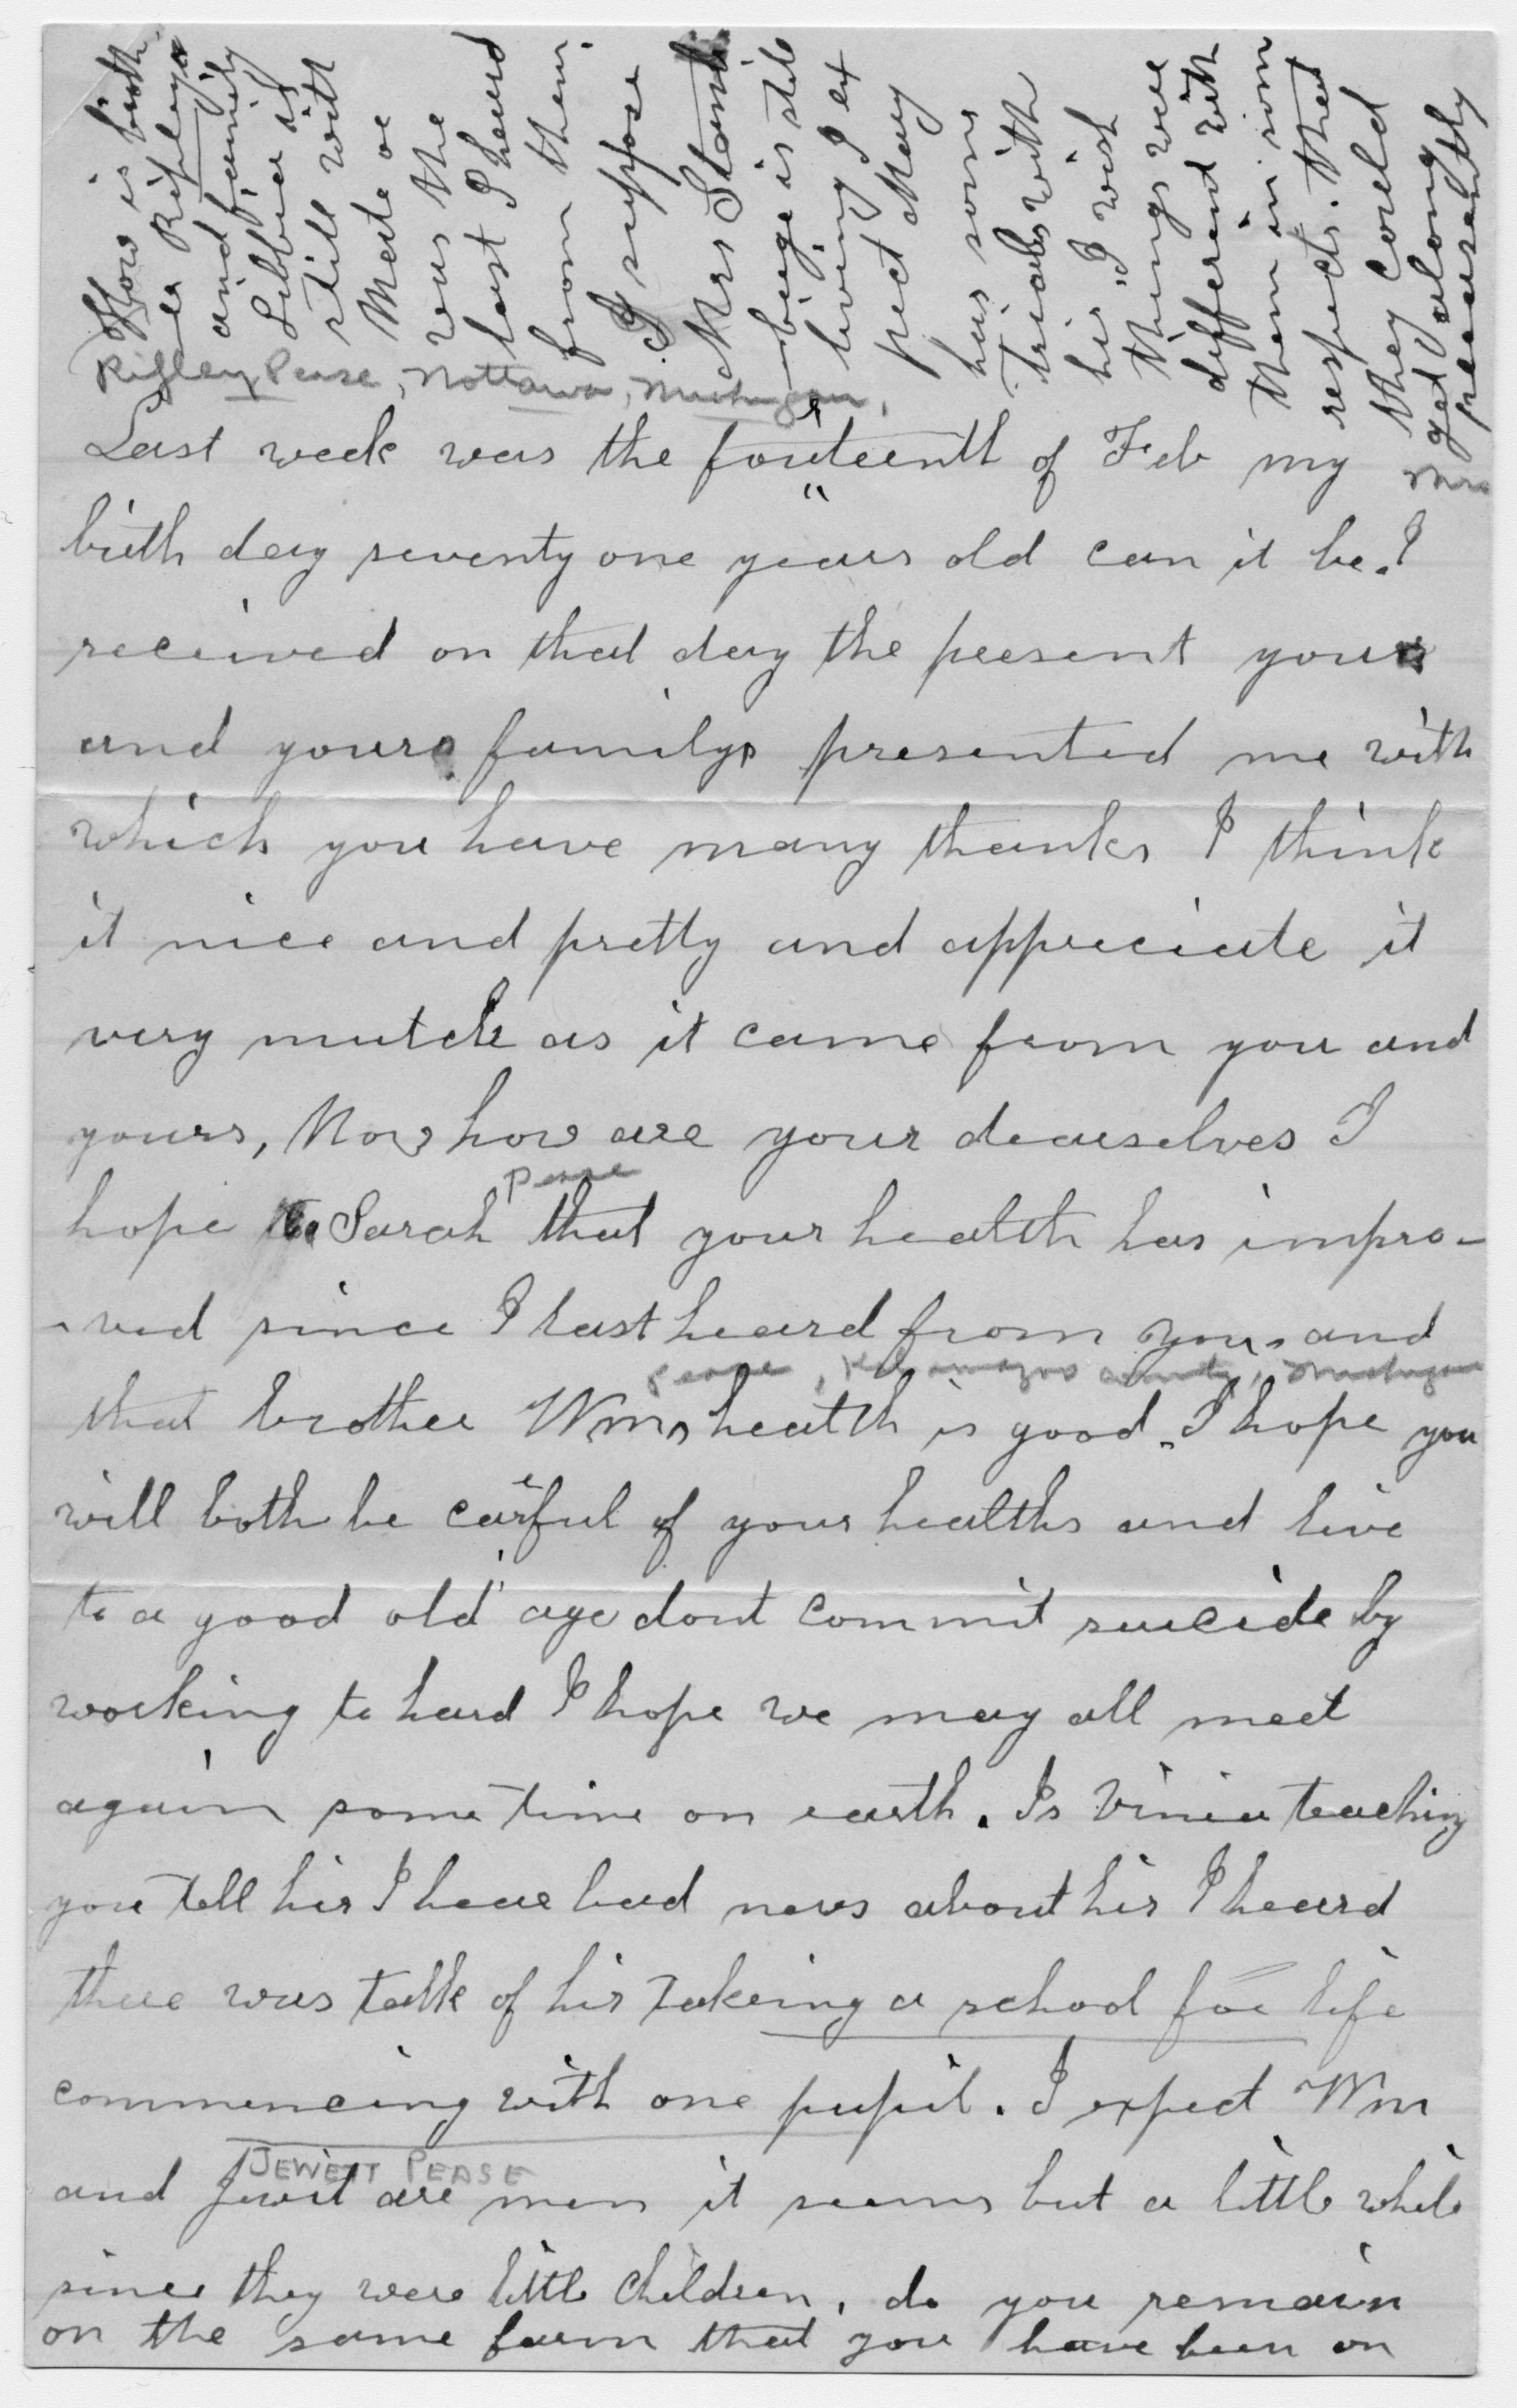 How is broth
er Ripleys
and family
Libbie is
still with
Mate or
was the
last I heard
from them.
I suppose
Mrs Stam
bige is still
living I ex
pect Mary
has some
trials with
her, I wish
things were
different with
them in som
respects. that
they could
get along
pleasantly
Ripley Pease, Nottawa, Michigan,
Last week was the fourteenth of Feb my
Mrs
birth day seventy one years old can it be. I
received on that day the present your
and yours familys presented me with
which you have many thanks I think
it nice and pretty and appreciate it
very mutch as it came from you and
yours, Now how are your dearselves I
Pease
hope to Sarah that your health has impro-
-ved since I last heard from you, and
Pease, Kalamazoo County, Michigan
that brother Wms health is good. I hope you
will both be careful of your healths and live
to a good old age dont commit suicide by
working to hard I hope we may all meet
again some time on earth. Is Vinia teaching
you tell her I have bad news about her I heard
there was talk of her takeing a school for life
commencing with one pupil. I expect Wm
JEWETT PEASE
and Jewit are men it seems but a little while
since they were little children, do you remain
on the same farm that you have been on